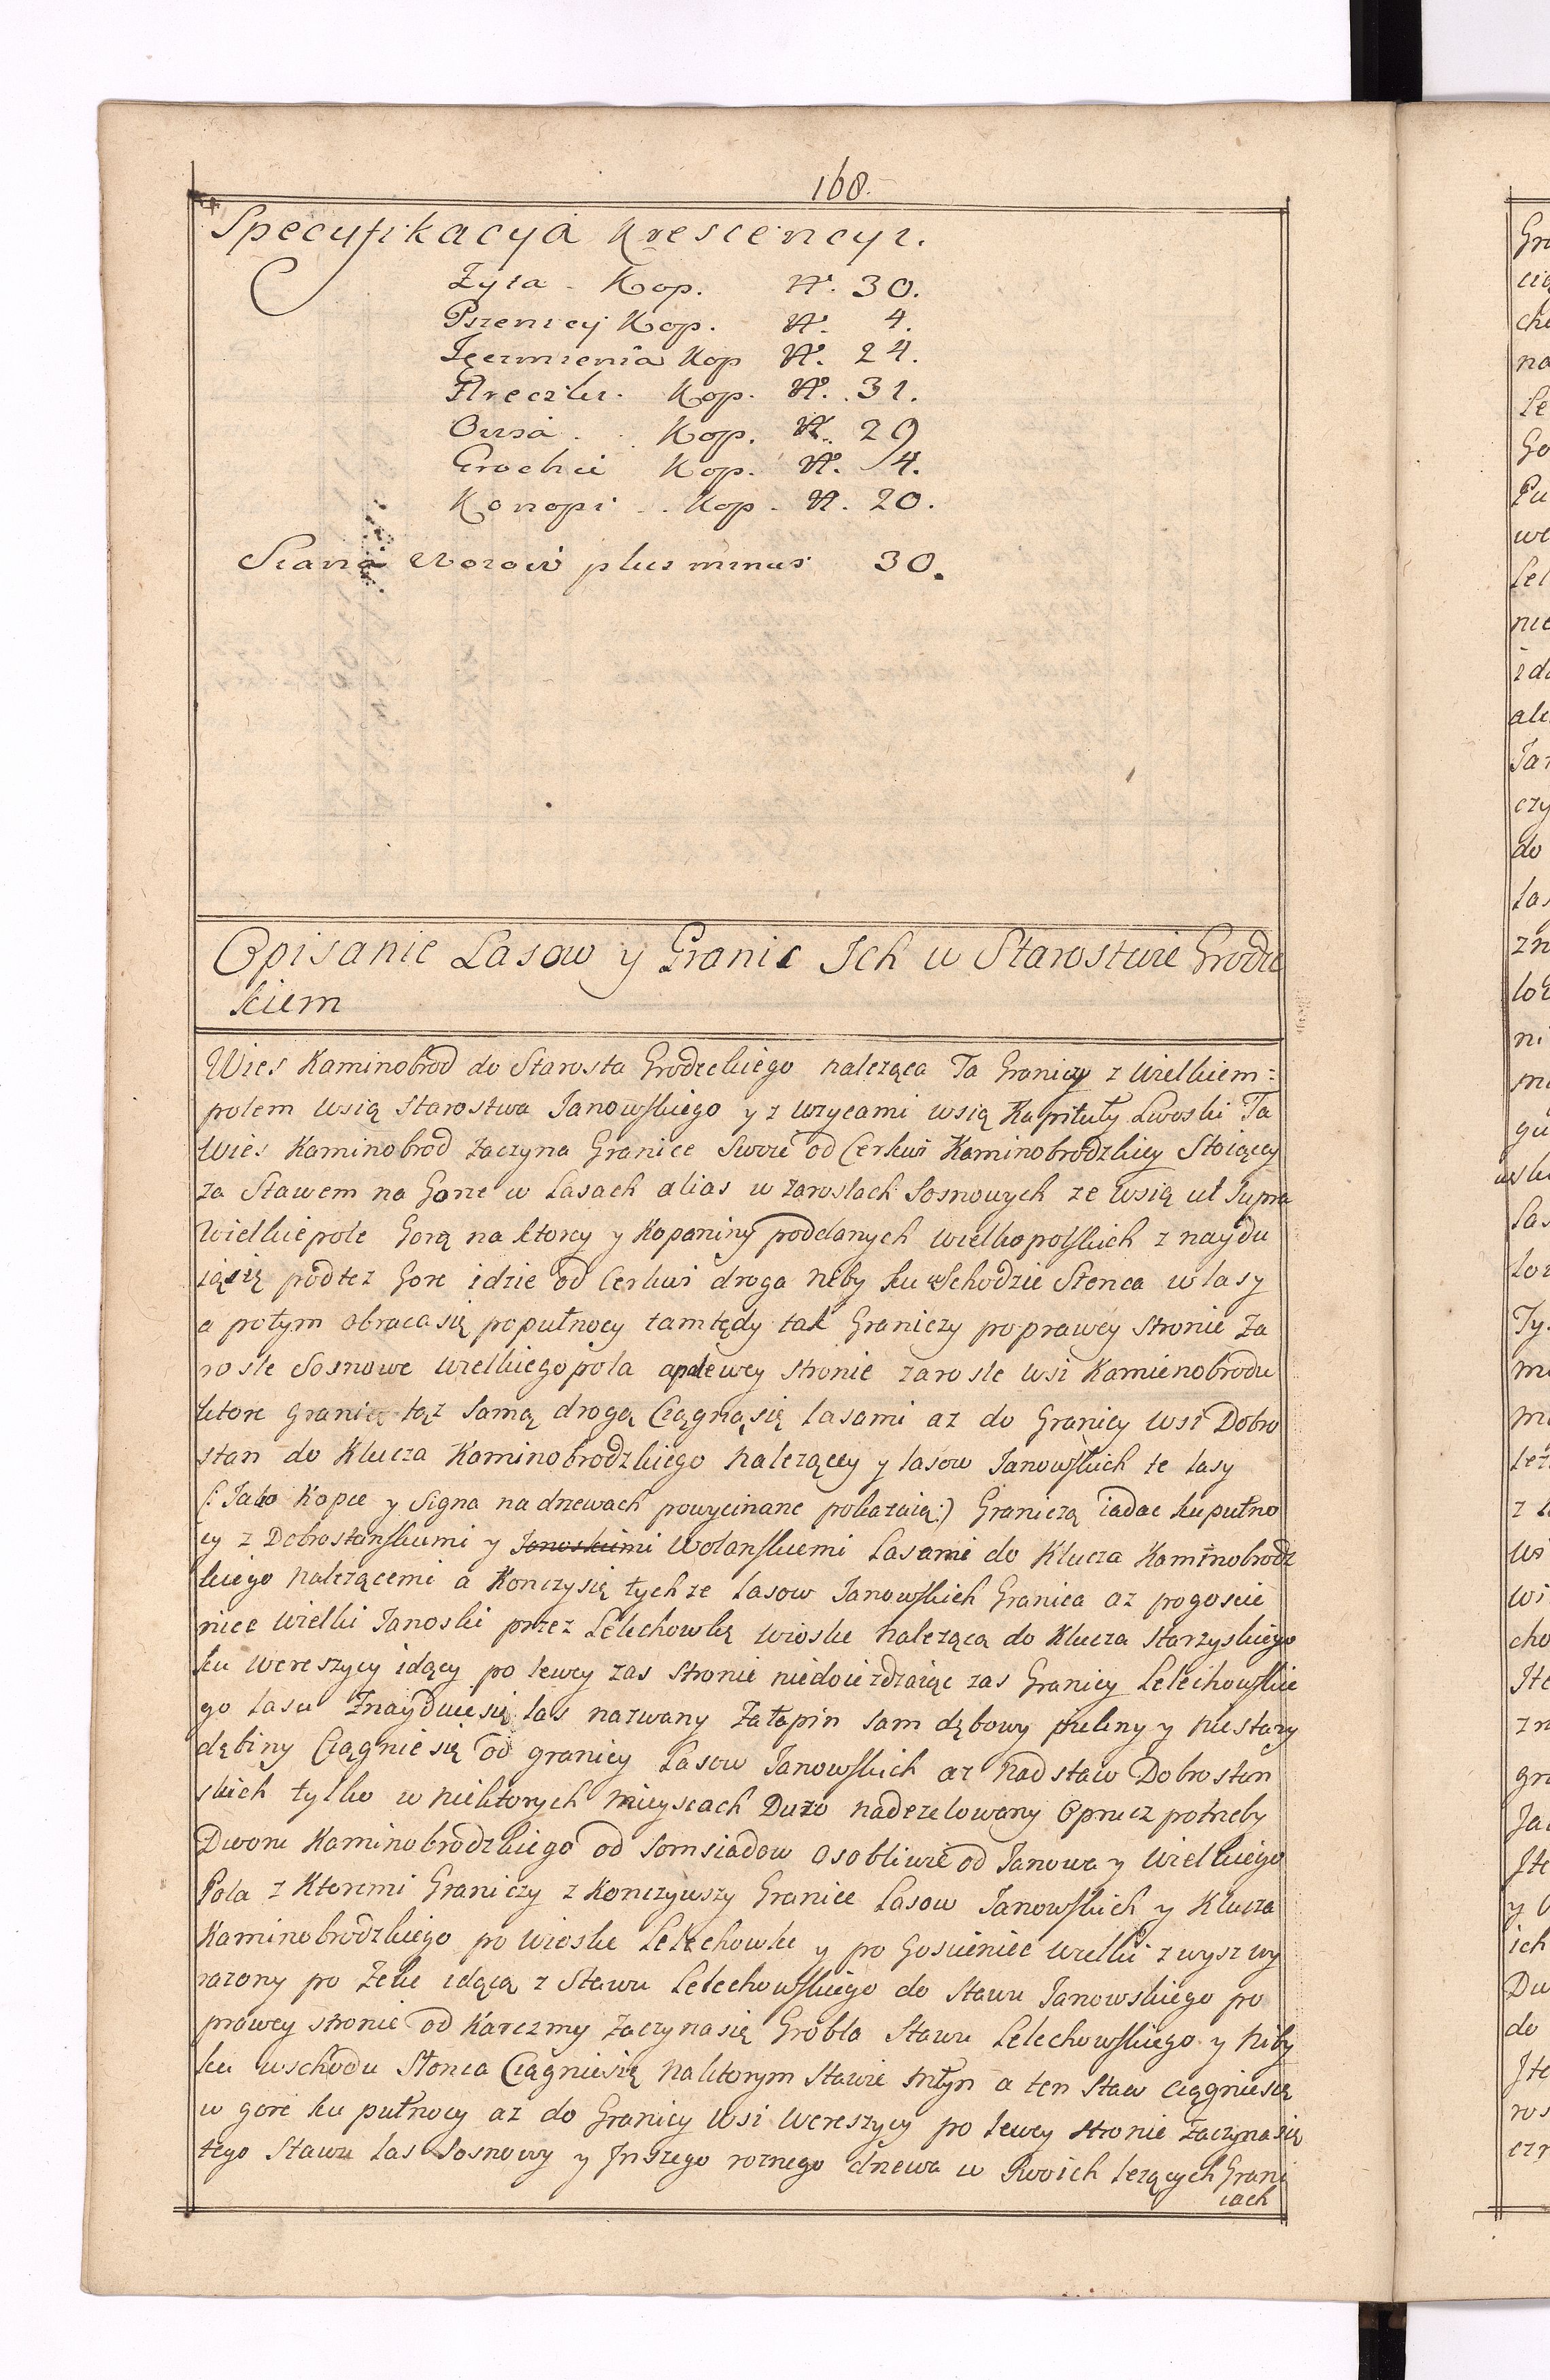 168.
Specyfikacya Krescencyi.
Zyta Kop. N. 30.
Pszenicy Kop. N. 4.
Jęczmienia Kop N. 24.
Hreczki. Kop. N. 31.
Owsa. Kop. N. 29
Grochu Kop. N. 4.
Konopi. Kop. N. 20.
Siana Wozow plus minus 30.
Opisanie Lasow y Granic Ich w Starostwie Grodec
kiem
Wies Kaminobrod do Starosta Grodzekiego naleząca Ta Graniczy z Wielkiem=
polem wsią Starostwa Janowskiego y z Wrycami wsią Kapituły Lwoski Ta
Wies Kaminobrod zaczyna Granice Swoie od Cerkwi Kaminobrodzkiey Stoiącey
za Stawem na Gorze w Lasach alias w zaroslach Sosnowych ze wsią ut Supra
Wielkiepole Gorą na ktorey y Kopaniny poddanych Wielkopolskich znaydu
ią się pod tez Gore idzie od Cerkwi droga niby ku wschodzie Słonca w lasy
a potym obraca się populnocy tamtędy tak Graniczy po prawey stronie Za
rosle Sosnowe Wielkiegopola apolewey stronie zarosle wsi Kamienobrodu
ktore granią tąz samą drogą Ciągną się lasami az do Granicy wsi Dobro
stan do Klucza Kaminobrodzkiego nalezącey y lasow Janowskich te lasy
(: Jako Kopce y Signa na drzewach powycinane pokazaią:) Graniczą iadac kupułno
cy z Dobrostanskiemi y Janoskiemi Wolanskiemi Lasami do Klucza Kaminobrodz
kiego nalezącemi a Konczy się tychze Lasow Janowskich Granica az pogoscie
niec Wielki Janoski przez Lelechowkę wioske nalezącą do Klucza Starzyskiego
ku Wereszycy idący po lewey zas stronie niedoiezdzaiąc zas Granicy Lelechowskie
go lasu Znayduie się las nazwany Załapin sam dębowy y niestary
dębiny Ciągnie się od granicy Lasow Janowskich az nad staw Dobrostan
skich tylko w niektorych mieyscach Duzo nadezelowany Oprucz potrzeby
Dworu Kaminobrodzkiego od Somsiadow osobliwie od Janowa y Wielkiego
Pola z Ktoremi Graniczy zkonczywszy Granice Lasow Janowskich y Klucza
Kaminobrodzkiego po wioske Lelechowke y po Gosieniec Wielki zwysz wy
razony po rzeke idącą z Stawu Lelechowskiego do Stawu Janowskiego po
prawey stronie od Karczmy zaczyna się Grobla Stawu Lelechowskiego y niby
ku wschodu Słonca Ciągnie się naktorym Stawie młyn a ten Staw ciągnie się
w gore ku pułnocy az do Granicy Wsi Wereszycy po lewey stronie zaczyna się
tego Stawu las Sosnowy y Inszego roznego drzewa w Swoich lezących Grani
cach